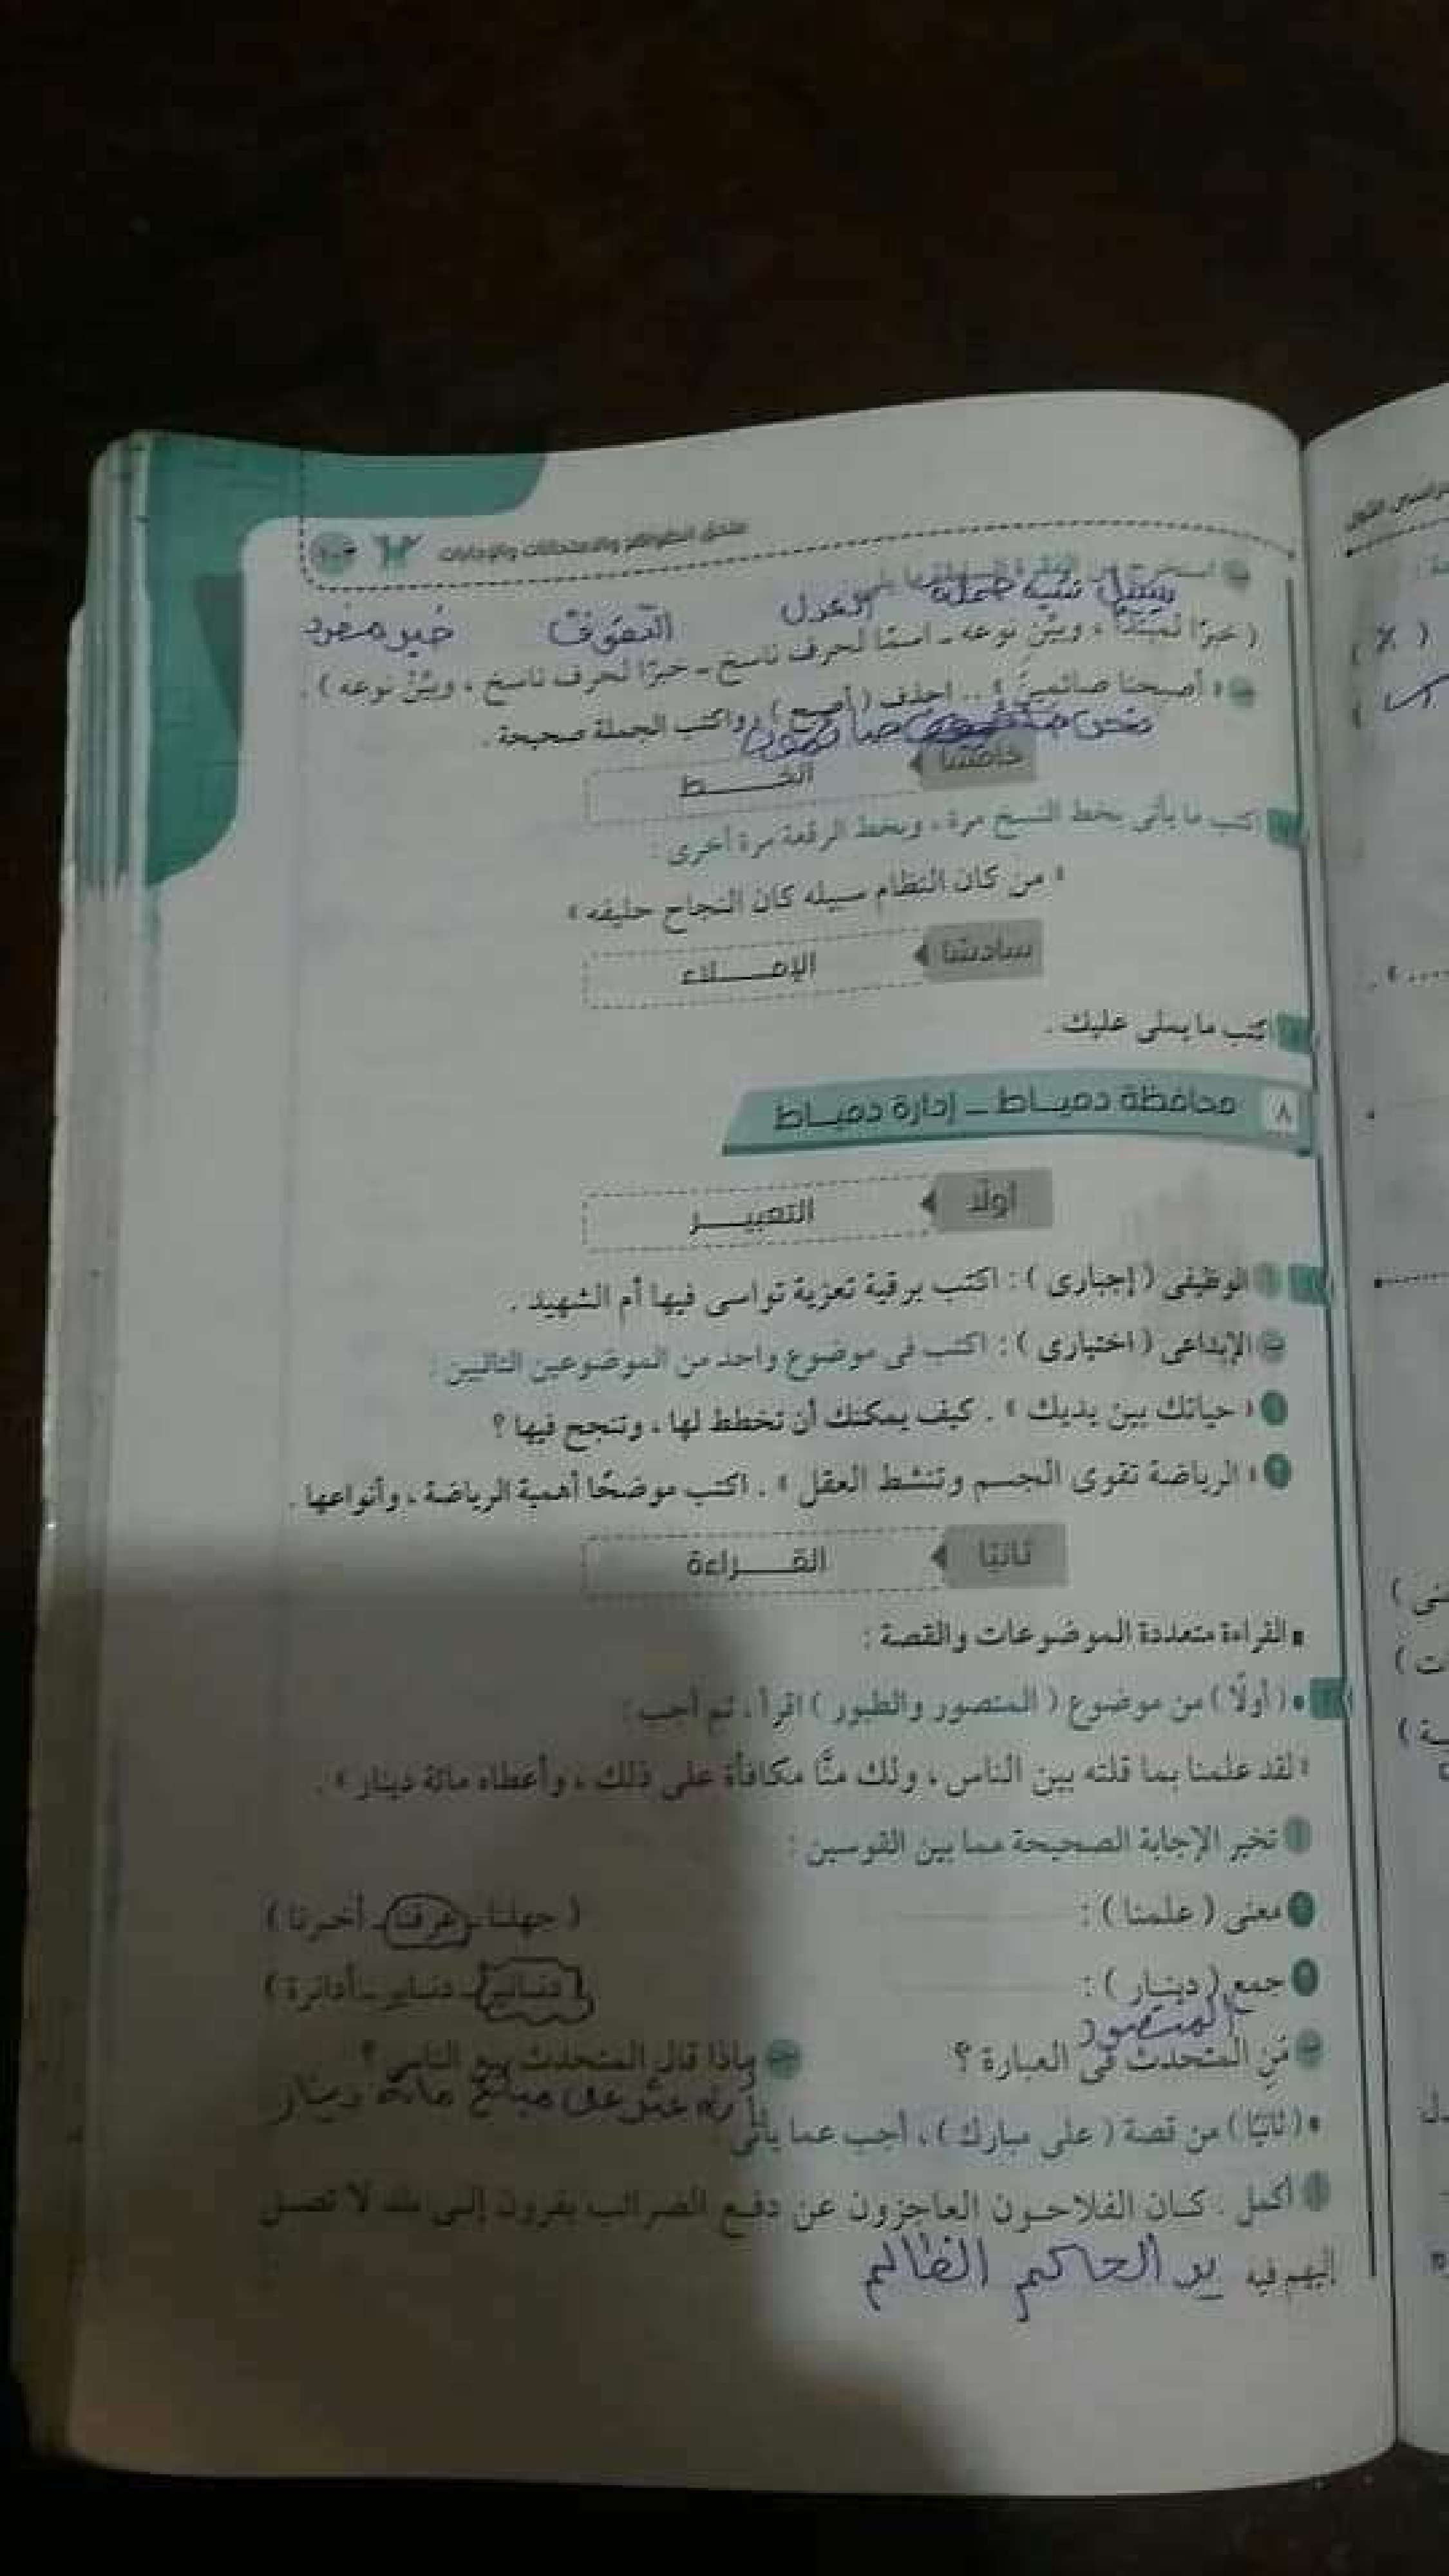 ملحق الظواهر والامتحانات والإجابات
استخرج من الفقرة السابقة ما يلى
شبه جملة العدل التصوف خبر مفرد
( خبرًا لمبتدأ ، وبيِّن نوعه - اسمًا لحرف ناسخ - خبرًا لحرف ناسخ ، وبيِّن نوعه ) .
« أصبحنا صائمينَ » .. احذف ( أصبح ) ، واكتب الجملة صحيحة .
نحن صائمون
خامسًا
الخـــط
اكتب ما يأتى بخط النسخ مرة ، وبخط الرقعة مرة أخرى :
« من كان النظام سبيله كان النجاح حليفه »
سادسًا
الإمـــلاء
اكتب ما يملى عليك .
٨ محافظة دميـاط – إدارة دميـاط
أولًا
التعبيـــر
الوظيفى ( إجبارى ) : اكتب برقية تعزية تواسى فيها أم الشهيد .
الإبداعى ( اختيارى ) : اكتب فى موضوع واحد من الموضوعين التاليين :
١ « حياتك بين يديك » . كيف يمكنك أن تخطط لها ، وتنجح فيها ؟
٢ « الرياضة تقوى الجسم وتنشط العقل » . اكتب موضحًا أهمية الرياضة ، وأنواعها .
ثانيًا
القـــراءة
القراءة متعددة الموضوعات والقصة :
• ( أولًا ) من موضوع ( المنصور والطيور ) اقرأ ، ثم أجب :
« لقد علمنا بما قلته بين الناس ، ولك منَّا مكافأة على ذلك ، وأعطاه مائة دينار » .
تخير الإجابة الصحيحة مما بين القوسين :
معنى ( علمنا ) : ( جهلنا - عرفنا - أخبرنا )
جمع ( دينار ) : ( دنانير - دنـايـر - أدانرة )
المنصور
مَنِ المتحدث فى العبارة ؟ وماذا قال المتحدث بين الناس ؟
مائة دينار
• ( ثانيًا ) من قصة ( على مبارك ) ، أجب عما يأتى
أكمل . كـان الفلاحـون العاجزون عن دفـع الضرائب يفرون إلـى بلد لا تصـل
إليهم فيه يد الحاكم الظالم